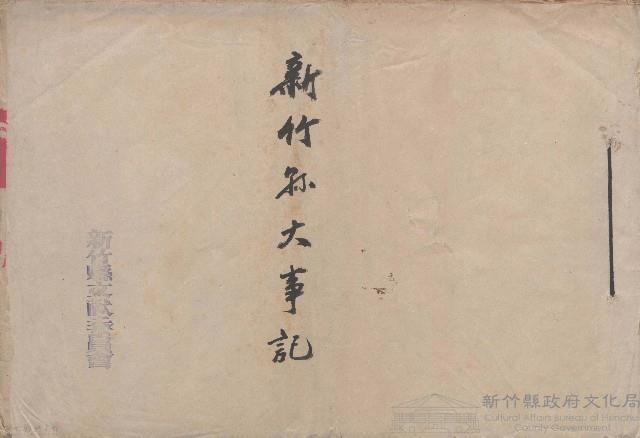 新竹县大事記
新竹縣文献委員會
新竹縣政府文化局
Cultural Affairs Bureau of Hsinchu
County Government